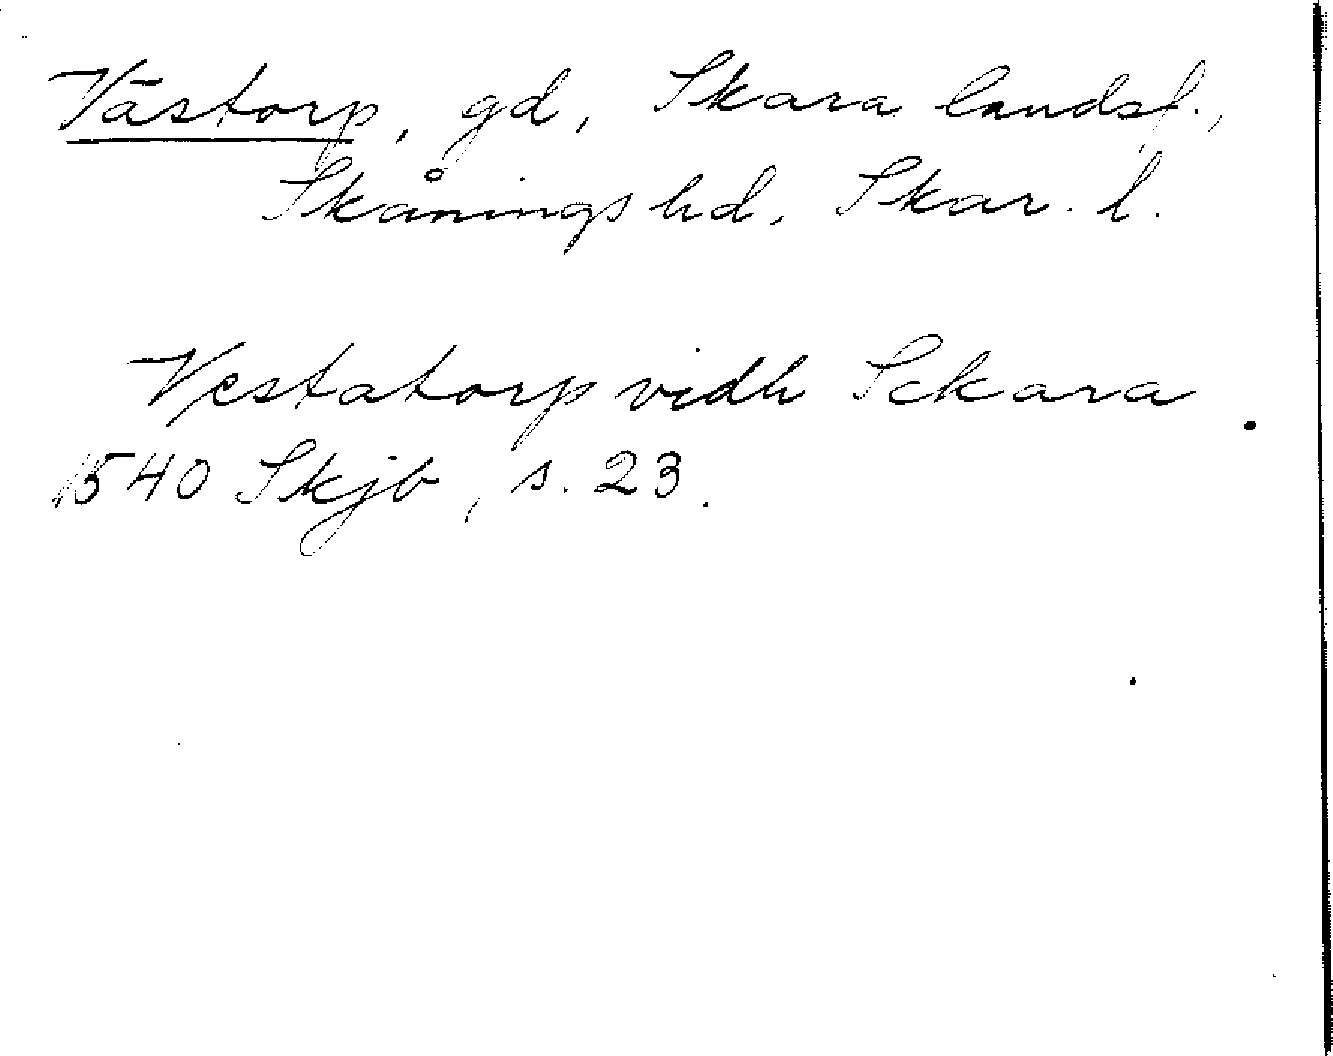 Västorp, gd, Skara landsf.,
Skånings hd, Skar. l.
Vestatorp vidh Sckara
1540 Skjb, s. 23.